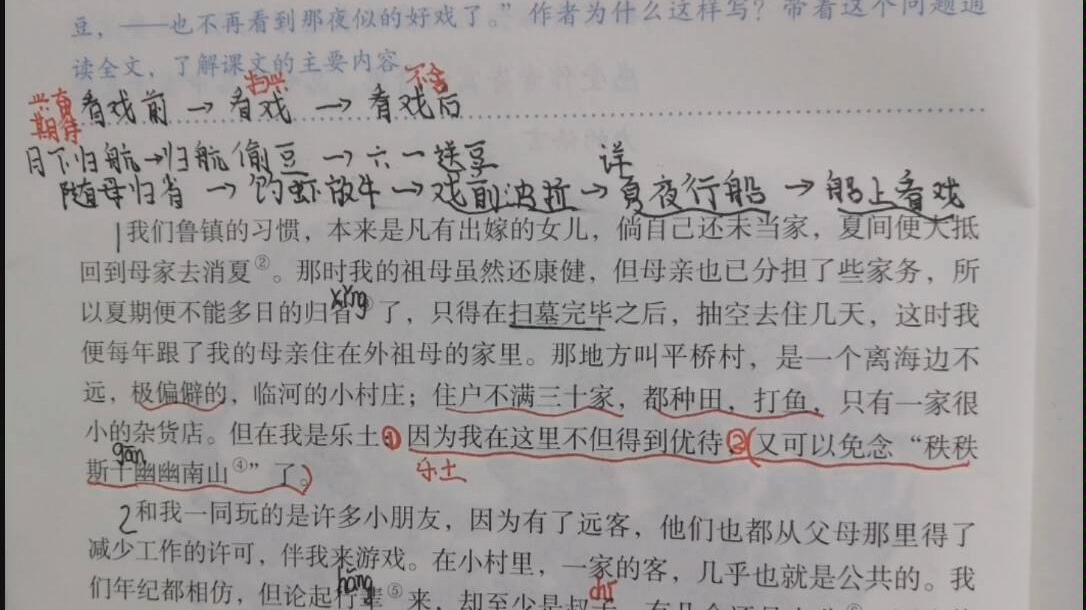 豆，——也不再看到那夜似的好戏了。”作者为什么这样写？带着这个问题通
读全文，了解课文的主要内容。
扫兴 不舍
兴奋 期待 看戏前 → 看戏 → 看戏后
月下归航 → 归航偷豆 → 六一送豆 详
随母归省 → 钓虾放牛 → 戏前波折 → 夏夜行船 → 船上看戏
1 我们鲁镇的习惯，本来是凡有出嫁的女儿，倘自己还未当家，夏间便大抵
回到母家去消夏②。那时我的祖母虽然还康健，但母亲也已分担了些家务，所
xǐng
以夏期便不能多日的归省③了，只得在扫墓完毕之后，抽空去住几天，这时我
便每年跟了我的母亲住在外祖母的家里。那地方叫平桥村，是一个离海边不
远，极偏僻的，临河的小村庄；住户不满三十家，都种田，打鱼，只有一家很
小的杂货店。但在我是乐土①因为我在这里不但得到优待②(又可以免念“秩秩
gān 乐土
斯干幽幽南山④”了。)
2 和我一同玩的是许多小朋友，因为有了远客，他们也都从父母那里得了
减少工作的许可，伴我来游戏。在小村里，一家的客，几乎也就是公共的。我
háng
们年纪都相仿，但论起行辈⑤来，却至少是叔